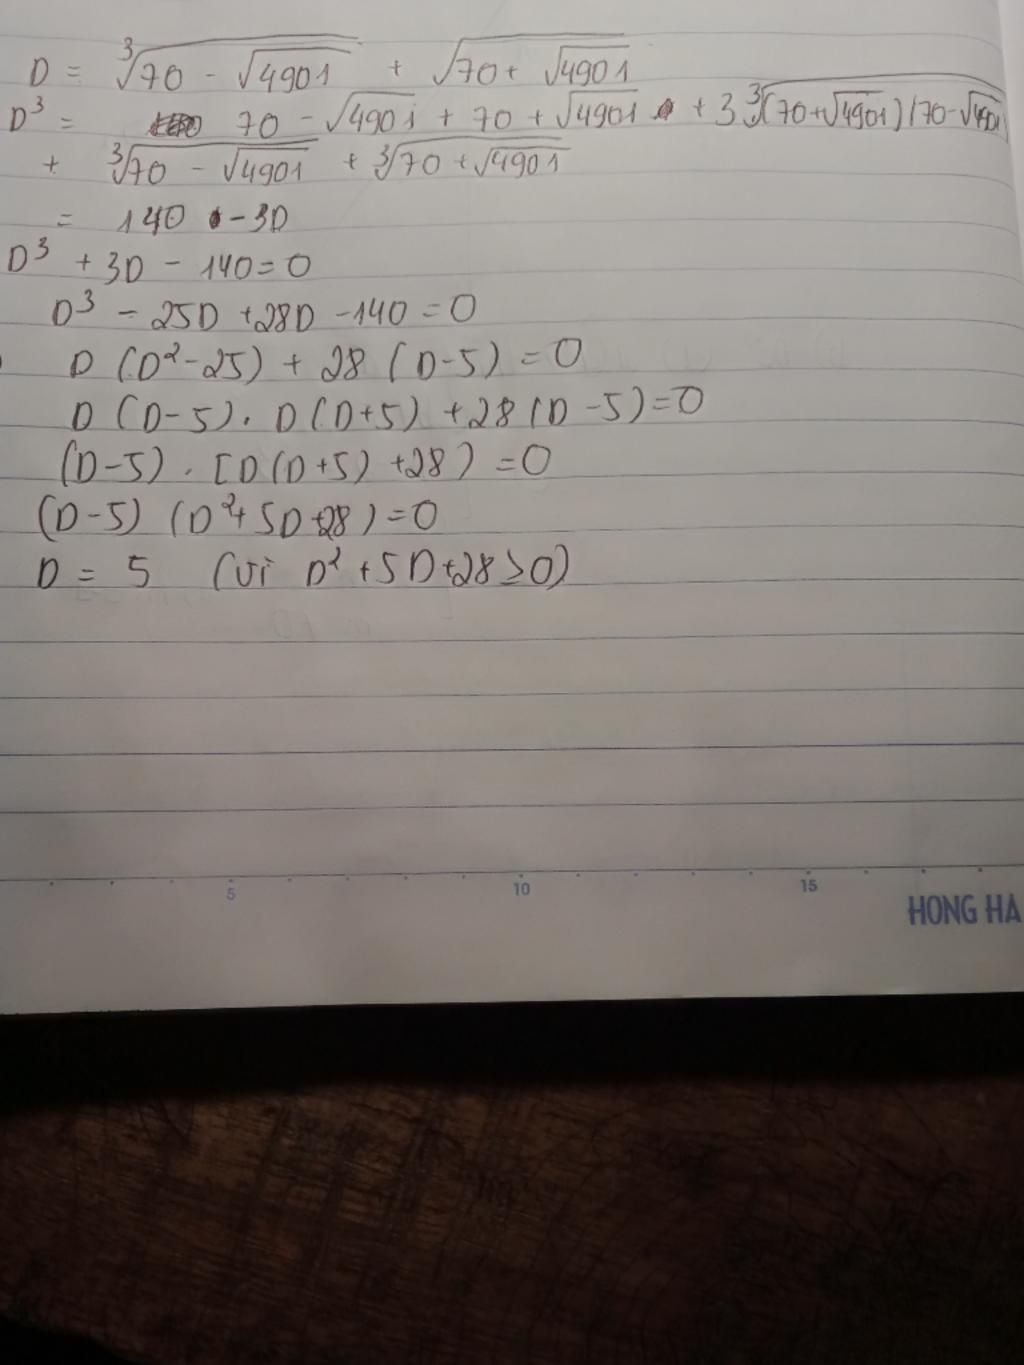 D = ∛(70 - √4901) + √(70 + √4901)
D³ = 70 - √4901 + 70 + √4901 + 3∛(70+√4901)(70-√4901)
+ ∛(70 - √4901) + ∛(70 + √4901)
= 140 - 3D
D³ + 3D - 140 = 0
D³ - 25D + 28D - 140 = 0
D (D² - 25) + 28 (D - 5) = 0
D (D - 5) . D (D + 5) + 28 (D - 5) = 0
(D - 5) . [D (D + 5) + 28) = 0
(D - 5) (D² + 5D + 28) = 0
D = 5 (vì D² + 5D + 28 > 0)
5 10 15
HONG HA